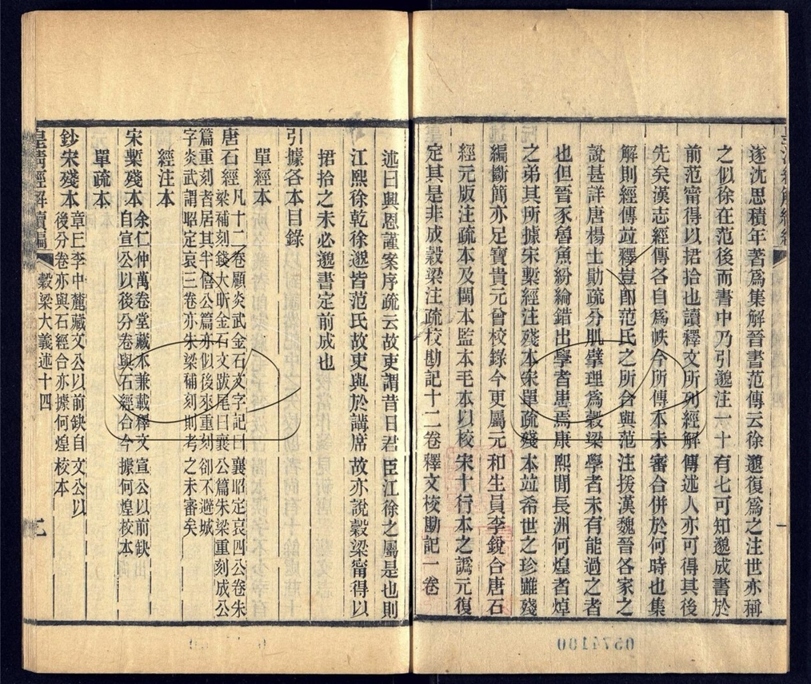 遂沈思積年著爲集解晉書范傳云徐邈復爲之注世亦稱
之似徐在范後而書中乃引邈注一十有七可知邈成書於
前范甯得以捃拾也讀釋文所列經解傳述人亦可得其後
先矣漢志經傳各自爲帙今所傳本未審合併於何時也集
解則經傳竝釋豈卽范氏之所合與范注援漢魏晉各家之
說甚詳唐楊士勛疏分肌擘理爲穀梁學者未有能過之者
也但晉豕魯魚紛綸錯出學者患焉康熙閒長洲何煌者焯
之弟其所據宋槧經注殘本宋單疏殘本竝希世之珍雖殘
編斷簡亦足寶貴元曾校錄今更屬元和生員李銳合唐石
經元版注疏本及閩本監本毛本以校宋十行本之譌元復
定其是非成穀梁注疏校勘記十二卷釋文校勘記一卷
述曰與恩謹案序疏云故吏謂昔日君臣江徐之屬是也則
江熙徐乾徐邈皆范氏故吏與於講席故亦說穀梁甯得以
捃拾之未必邈書定前成也
引據各本目錄
單經本
唐石經
凡十二卷顧炎武金石文字記曰襄昭定哀四公卷朱
梁補刻錢大昕金石文跋尾曰襄公篇朱梁重刻成公
篇重刻者居其半僖公篇亦似後來重刻卻不避城
字炎武謂昭定哀三卷亦朱梁補刻則考之未審矣
經注本
宋槧殘本
余仁仲萬卷堂藏本兼載釋文宣公以前缺
自宣公以後分卷與石經合今據何煌校本
單疏本
鈔宋殘本
章丘李中麓藏文公以前缺自文公以
後分卷亦與石經合亦據何煌校本
皇淸經解續編
穀梁大義述十四
0574100